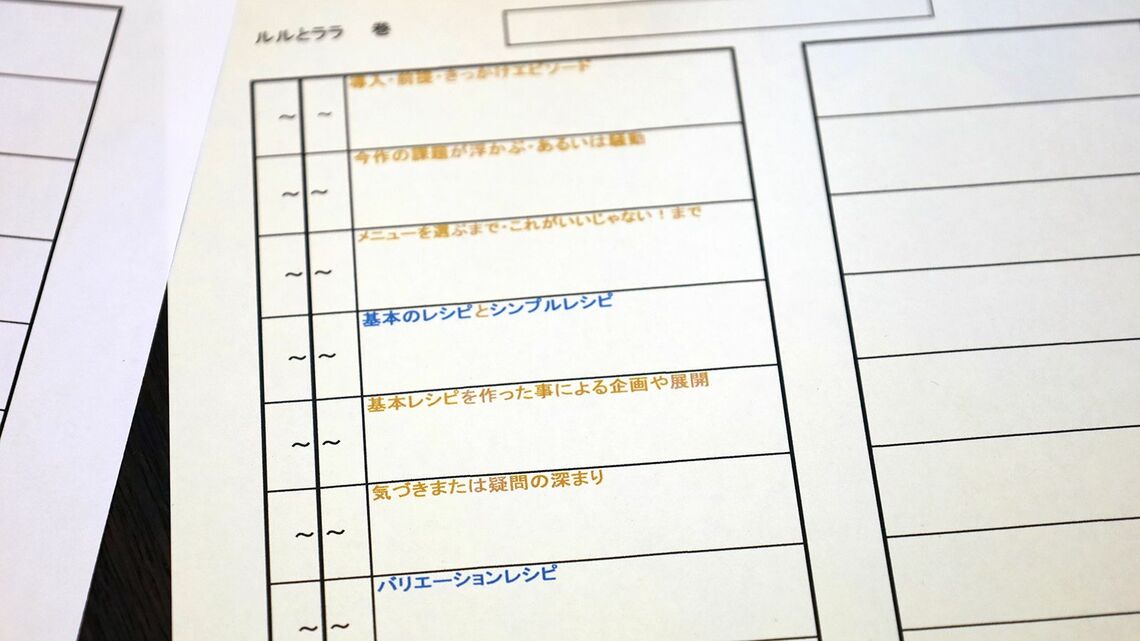 ルルとララ 巻
～ ～ 導入・前提・きっかけエピソード
～ ～ 今作の課題が浮かぶ・あるいは騒動
～ ～ メニューを選ぶまで・これがいいじゃない！まで
～ ～ 基本のレシピとシンプルレシピ
～ ～ 基本レシピを作った事による企画や展開
～ ～ 気づきまたは疑問の深まり
～ ～ バリエーションレシピ